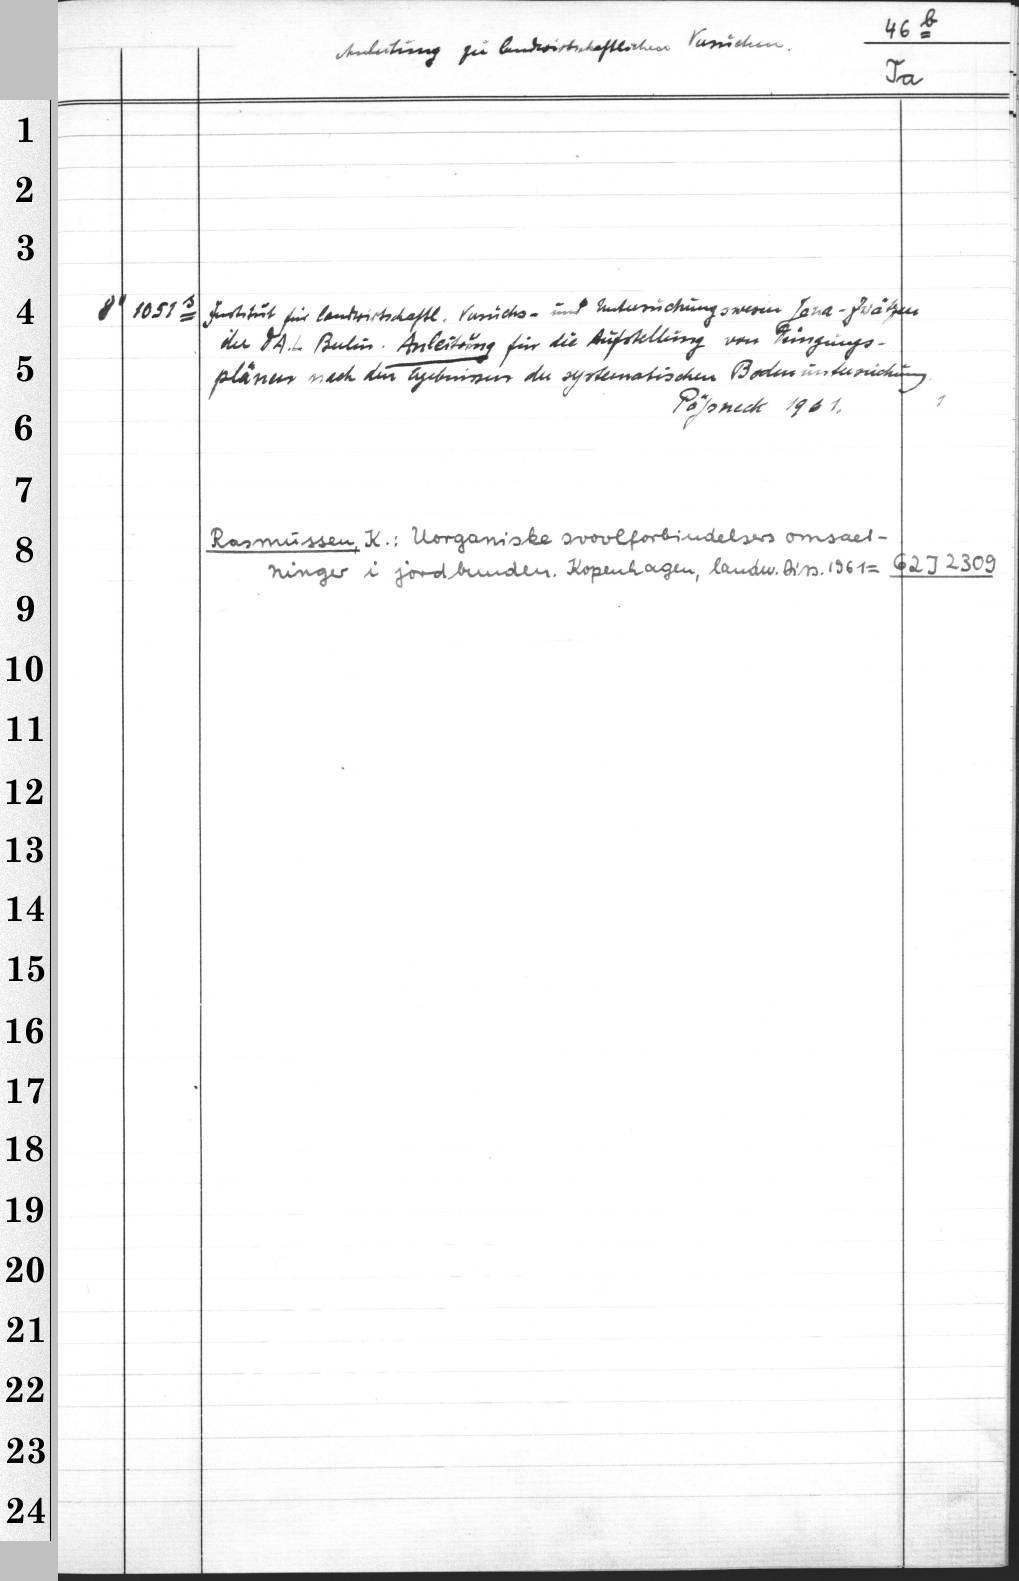 46 b
Anleitung zu landwirtschaftlichen Versuchen.
Ta
1
2
3
4 8° 1051 s Institut für landwirtschaftl. Versuchs- und Untersuchungswesen Jena-Zwätzen
der DAL Berlin. Anleitung für die Aufstellung von Düngungs-
5 plänen nach den Ergebnissen der systematischen Bodenuntersuchung.
Pößneck 1961. 1
6
7
8 Rasmussen, K.: Uorganiske svovlforbindelsers omsaet-
ninger i jordbunden. Kopenhagen, landw. Diss. 1961 = 62 J 2309
9
10
11
12
13
14
15
16
17
18
19
20
21
22
23
24